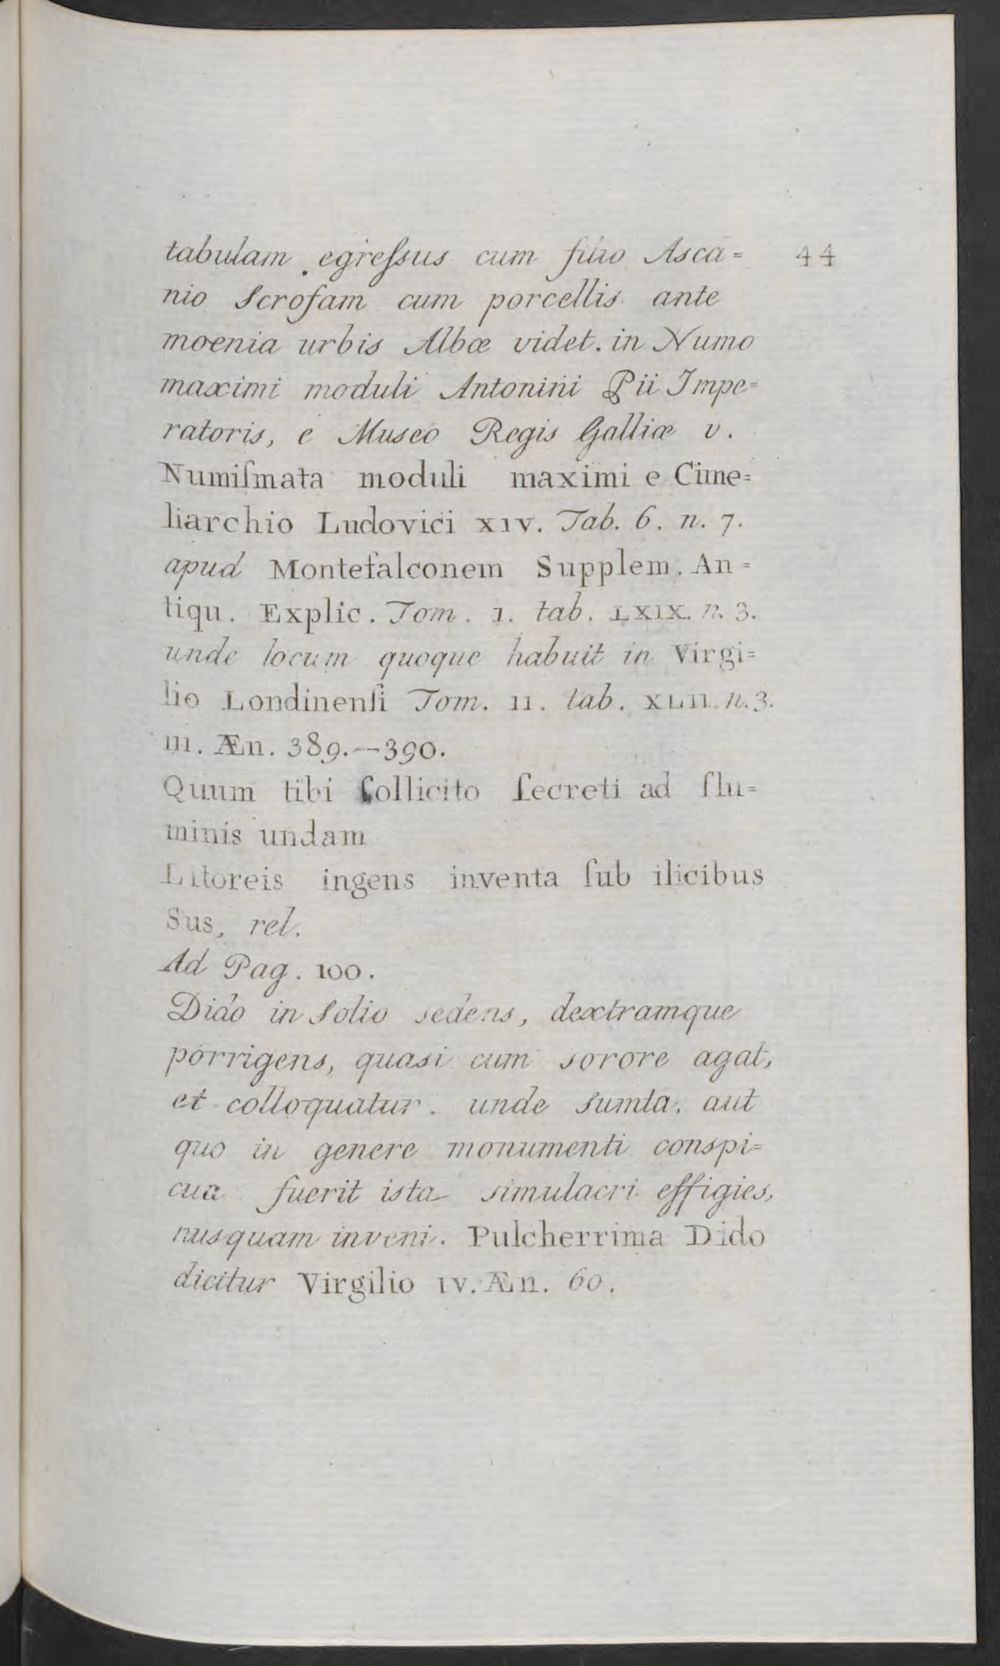 tabulam egreſsus cum filio Asca= 44
nio Scrofam cum porcellis ante
moenia urbis Albæ videt. in Numo
maximi moduli Antonini Pii Impe=
ratoris, e Museo Regis Galliæ v.
Numiſmata moduli maximi e Cime=
liarchio Ludovici XIV. Tab. 6. n. 7.
apud Montefalconem Supplem. An=
tiqu. Explic. Tom. I. tab. LXIX. n. 3.
unde locum quoque habuit in Virgi=
lio Londinenſi Tom. II. tab. XLII. n. 3.
III. Æn. 389.--390.
Quum tibi ſollicito ſecreti ad flu=
minis undam
Litoreis ingens inventa ſub ilicibus
Sus, rel.
Ad Pag. 100.
Dido in Solio sedens, dextramque
porrigens, quasi cum sorore agat,
et colloquatur. unde sumta, aut
quo in genere monumenti conspi=
cua fuerit ista simulacri effigies,
nusquam inveni. Pulcherrima Dido
dicitur Virgilio IV. Æn. 60.